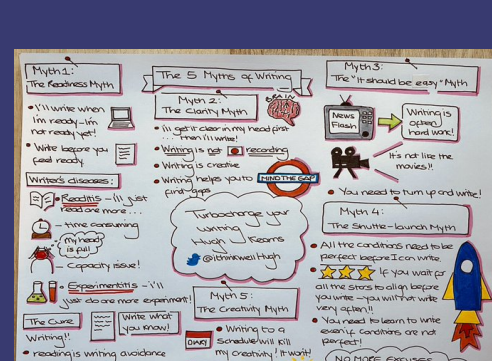 The 5 Myths of Writing
Myth 1:
The Readiness Myth
I'll write when
I'm ready - I'm
not ready yet!
Write before you
feel ready
Writer's diseases:
Readitis - I'll just
read one more...
- time consuming
my head
is full
- Capacity issue!
Experimentitis - I'll
just do one more experiment!
The Cure
Writing!!
Write what
you know!
reading is writing avoidance
Myth 2:
The Clarity Myth
BRAIN
ill get it clear in my head first
... then I'll write!
Writing is not recording
Writing is creative
Writing helps you to
find gaps
MIND THE GAP
Turbocharge your
writing
Hugh Kearns
@ithinkwellHugh
Myth 5:
The Creativity Myth
DIARY
Writing to a
schedule will kill
my creativity! It won't!
Myth 3:
The "It should be easy" Myth
News
Flash
Writing is
often
hard work!
It's not like the
movies!!
You need to turn up and write!
Myth 4:
The Shuttle-launch Myth
All the conditions need to be
perfect before I can write.
If you wait for
all the stars to align before
you write - you will not write
very often!!
You need to learn to write
even if conditions are not
perfect!
NO MORE EXCUSES